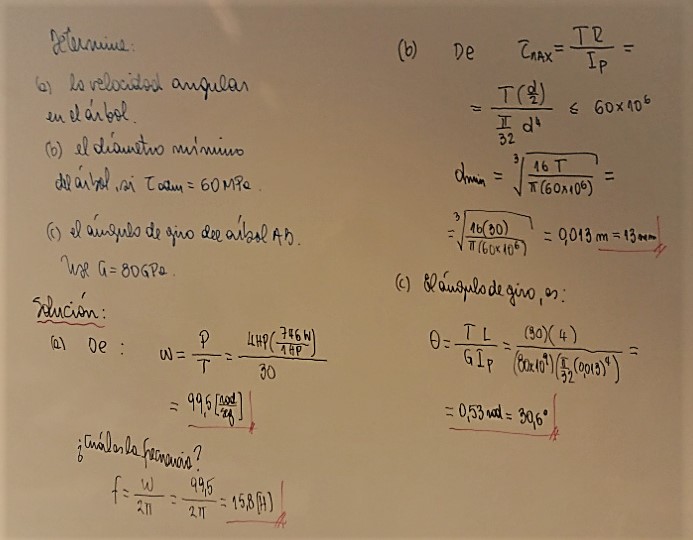 Determine:
(a) la velocidad angular
en el árbol.
(b) el diámetro mínimo
del árbol, si τadm = 60 MPa.
(c) el ángulo de giro del árbol AB.
Use G = 80 GPa.
Solución:
(a) De : w = P/T = 4HP(746W/1HP)/30
= 99,5 [rad/seg]
¿Cuál es la frecuencia?
f = w/2π = 99,5/2π = 15,8 [H]
(b) De τMAX = TR/IP =
= T(d/2) / (π/32 d⁴) ≤ 60×10⁶
dmin = ³√(16 T / π(60×10⁶)) =
= ³√(16(30) / π(60×10⁶)) = 0,013 m = 13 mm
(c) El ángulo de giro, es:
θ = T L / G IP = (30)(4) / (80×10⁹)(π/32 (0,013)⁴) =
= 0,53 rad = 30,6°